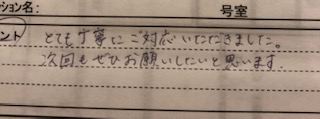 ション名：　号室
ント　とても丁寧にご対応いただきました。
次回もぜひお願いしたいと思います.